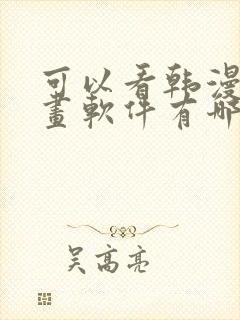 可以看韩漫
畫軟件有哪
吴高亮